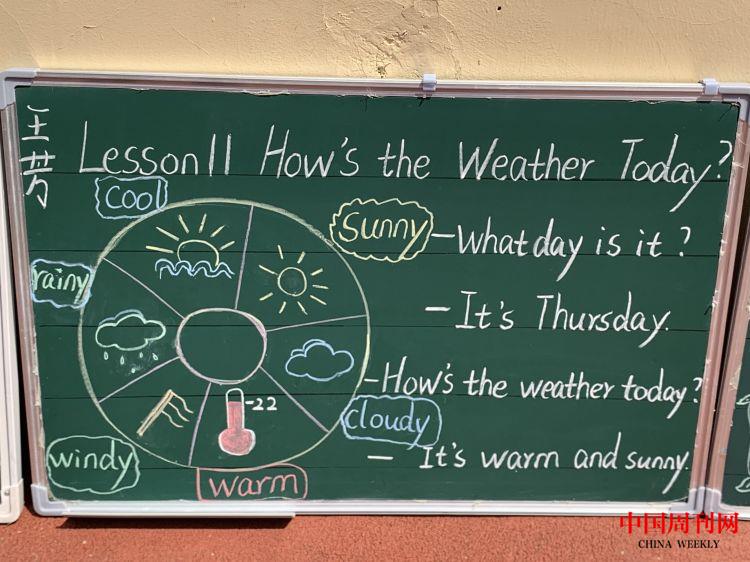 王芳
Lesson 11 How's the Weather Today?
cool
sunny
-What day is it?
rainy
-It's Thursday.
-22
-How's the weather today?
cloudy
windy
- It's warm and sunny.
warm
中国周刊网
CHINA WEEKLY